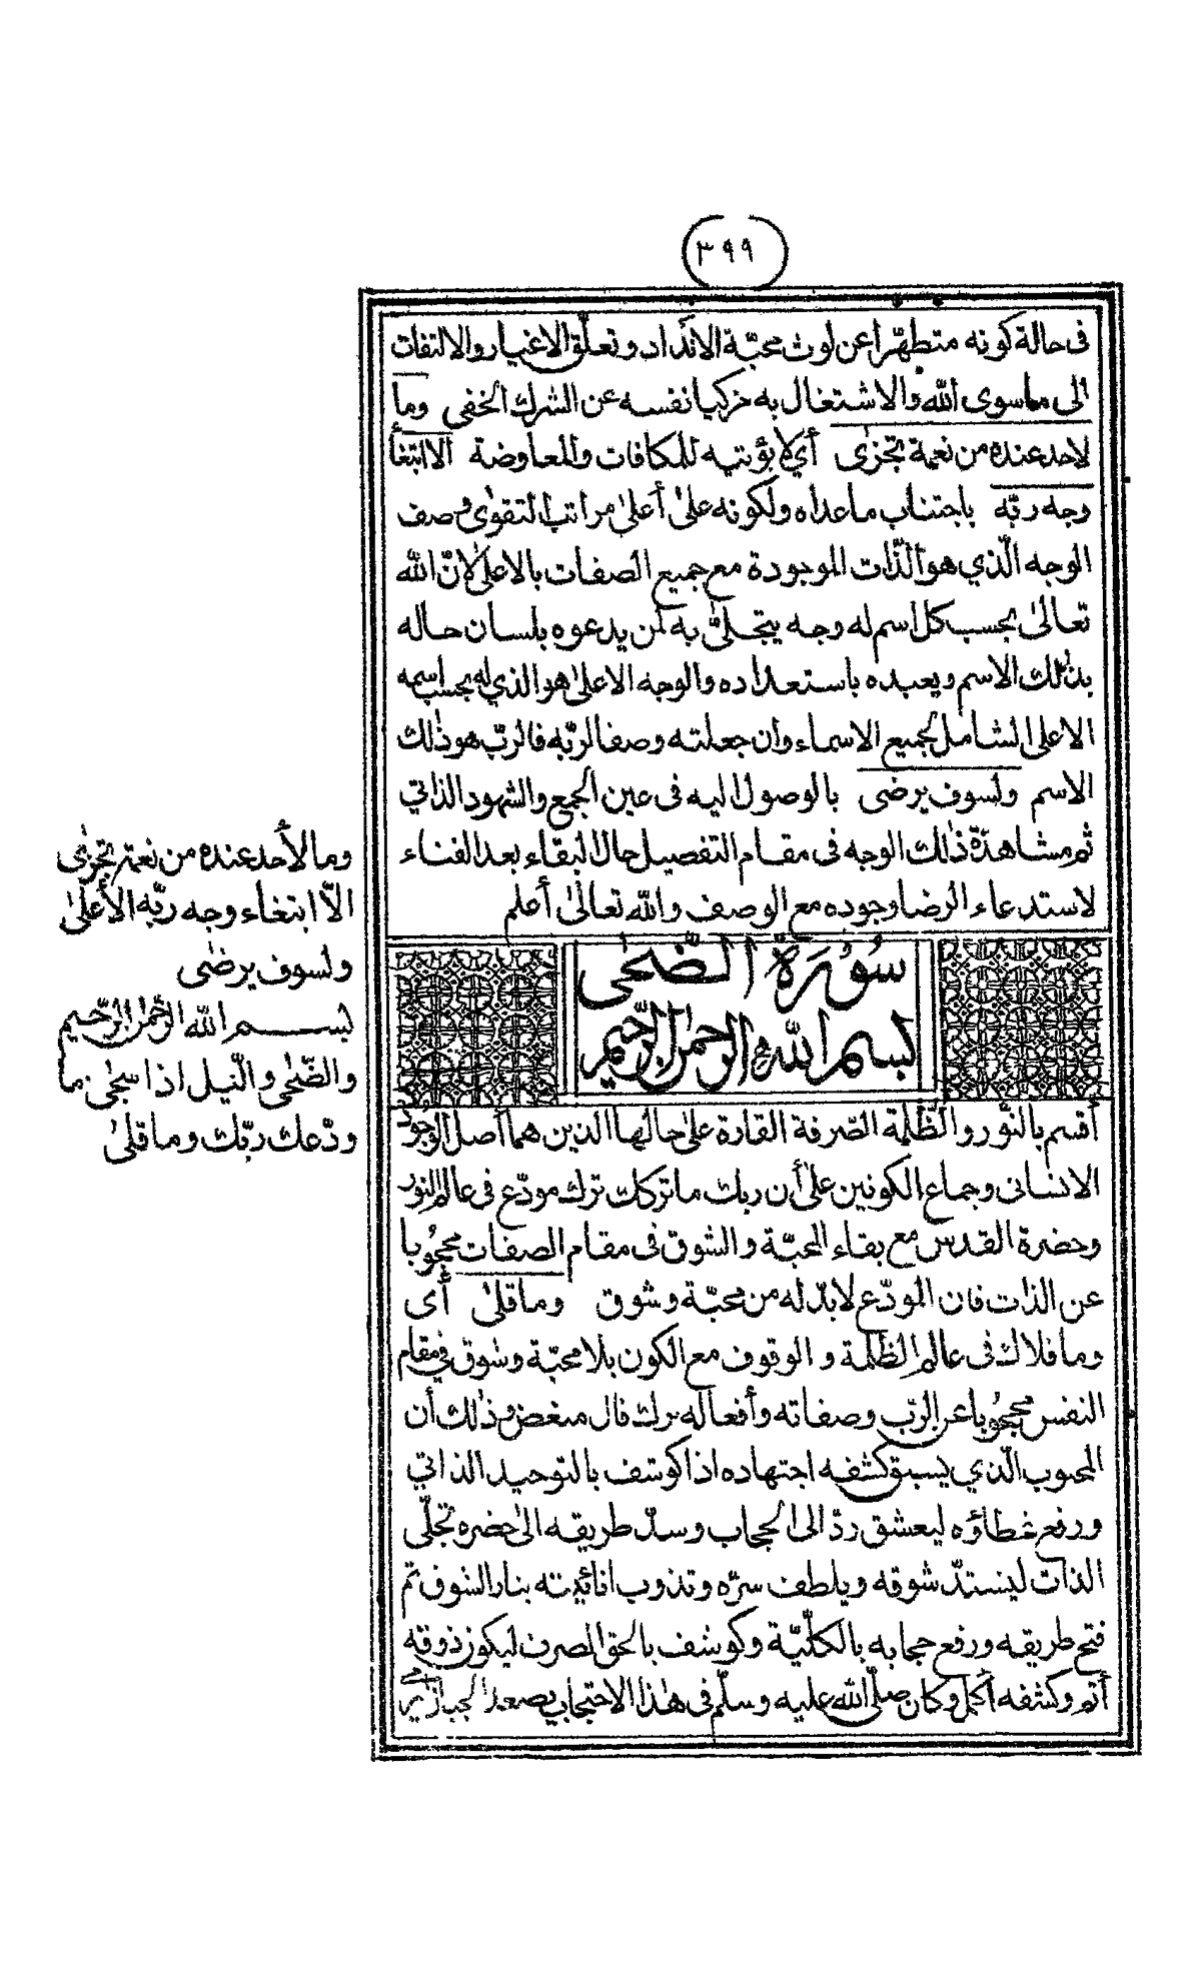 (٣٩٩)
فى حالة كونه متطهّرا عن لوث محبّة الانداد وتعلّق الاغيار والالتفات
الى ماسوى الله والاشتغال به مزكيا نفسه عن الشرك الخفى وما
لاحد عنده من نعمة تجزى أى لا يؤتيه للمكافات والمعاوضة الا ابتغاء
وجه ربّه باجتناب ماعداه ولكونه على أعلى مراتب التقوى وصف
الوجه الّذي هو الذّات الموجودة مع جميع الصفات بالاعلى لانّ الله
تعالى بحسب كل اسم له وجه يتجلىّ به لمن يدعوه بلسان حاله
بذلك الاسم ويعبده باستعداده والوجه الاعلى هو الذي له بحسب اسمه
الاعلى الشامل لجميع الاسماء وان جعلته وصفا لربّه فالربّ هو ذلك
الاسم ولسوف يرضى بالوصول اليه فى عين الجمع والشهود الذاتي
ثم مشاهدة ذلك الوجه فى مقام التفصيل حال البقاء بعد الفناء
لاستدعاء الرضا وجوده مع الوصف والله تعالى أعلم
سُوْرَةُ الضّحٰى
بسم الله الرحمن الرحيم
أقسم بالنّور والظّلمة الصّرفة القارة على حالها الذين هما أصل الوجود
الانسانى وجماع الكونين على أن ربك ما تركك ترك مودّع فى عالم النور
وحضرة القدس مع بقاء المحبّة والشوق فى مقام الصفات محجُوبا
عن الذات فان المودّع لا بدّ له من محبّة وشوق وما قلى أى
وما قلاك فى عالم الظلمة والوقوف مع الكون بلا محبّة وشوق فى مقام
النفس محجُوبا عن الربّ وصفاته وأفعاله ترك قال مبغض وذلك أن
المحبوب الّذي يسبق كشفه اجتهاده اذا كوشف بالتوحيد الذاتي
ورفع غطاؤه ليعشق ردّ الى الحجاب وسدّ طريقه الى حضرة تجلّى
الذات ليشتدّ شوقه ويلطف سرّه وتذوب انائيته بنار الشوق ثم
فتح طريقه ورفع حجابه بالكلّيّة وكوشف بالحق الصرف ليكون ذوقه
أتم وكشفه أكمل وكان صلّى الله عليه وسلّم فى هذا الاحتجاب يصعد الجبال
وما لأحد عنده من نعمة تجزى
الّا ابتغاء وجه ربّه الأعلى
ولسوف يرضى
بســـم الله الرّحمن الرّحيم
والضّحى والّيل اذا سجى ما
ودّعك ربّك وما قلى